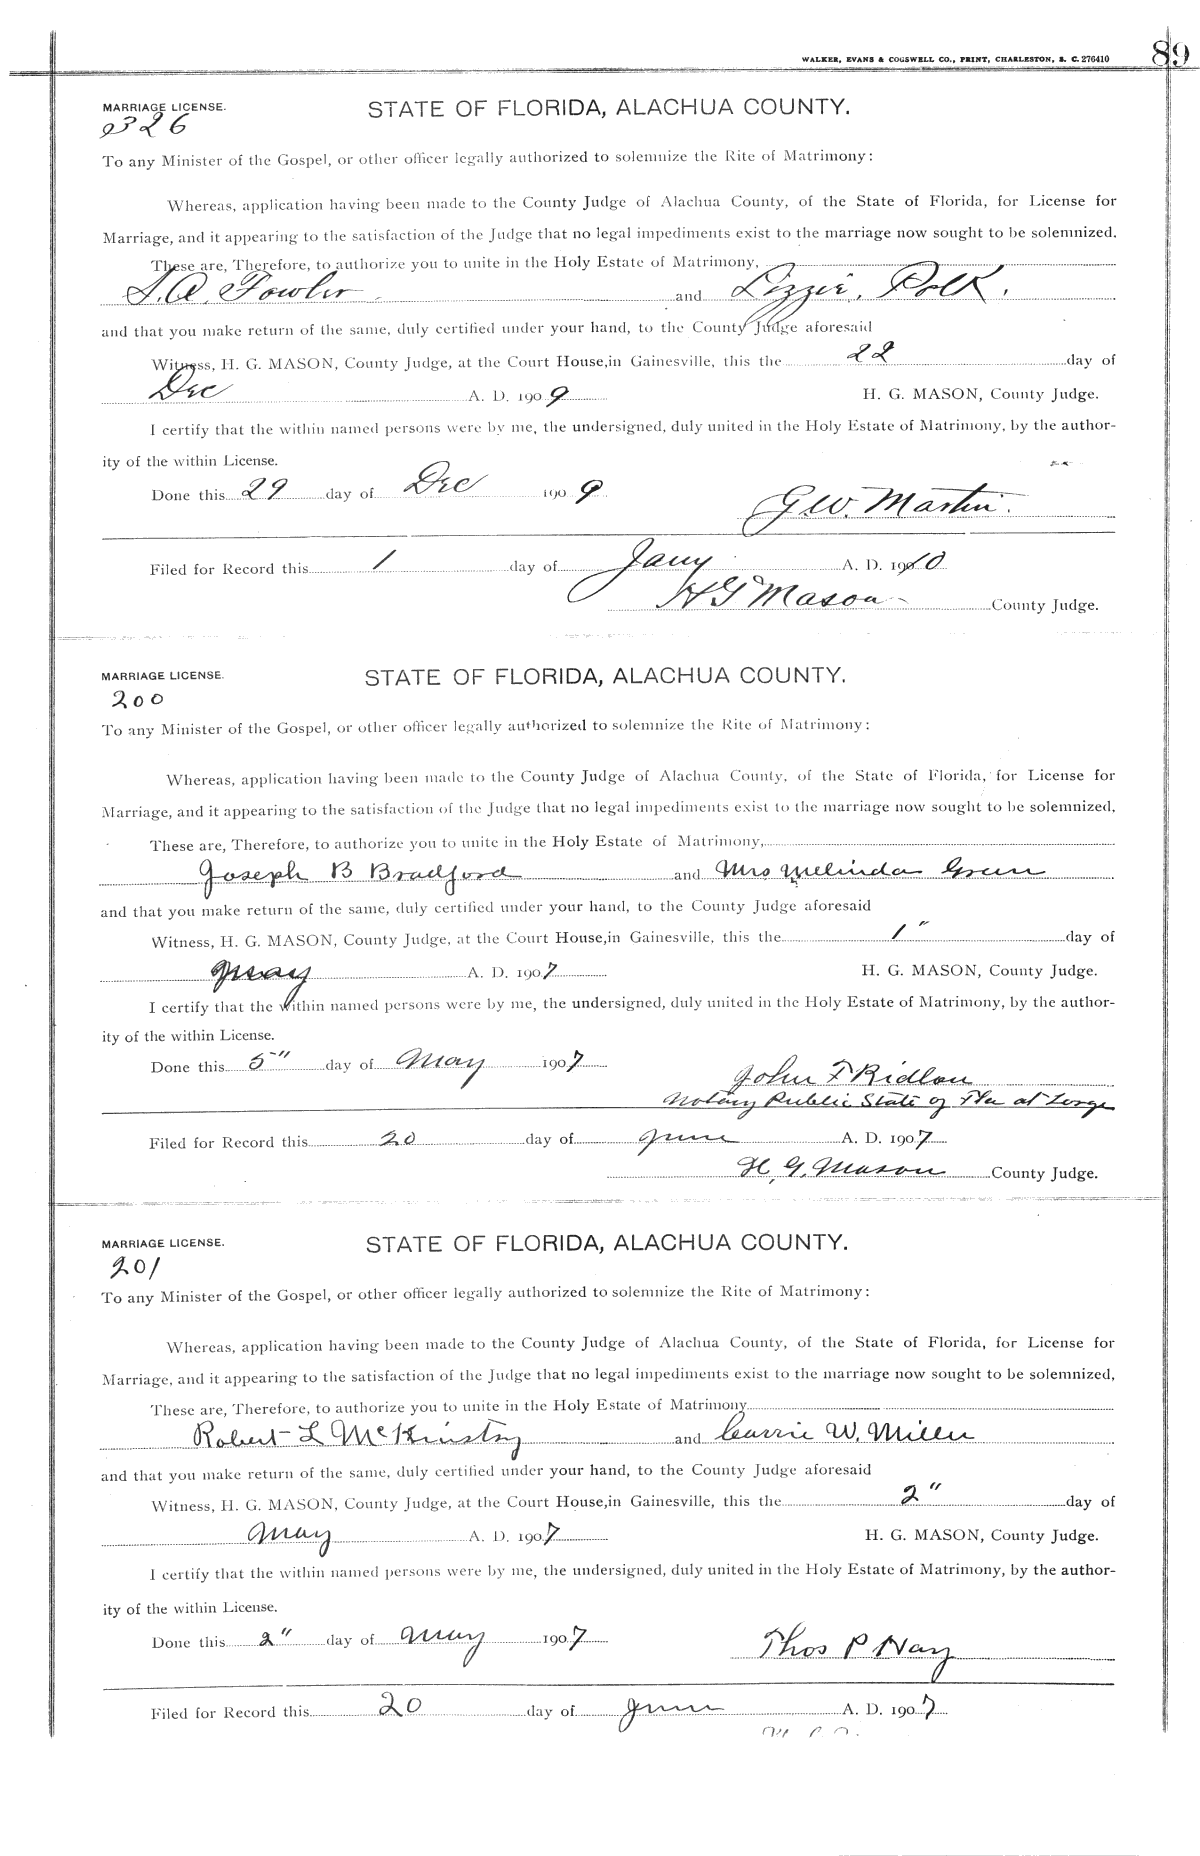 WALKER, EVANS & COGSWELL CO., PRINT, CHARLESTON, S. C. 276410
89
MARRIAGE LICENSE.
STATE OF FLORIDA, ALACHUA COUNTY.
2326
To any Minister of the Gospel, or other officer legally authorized to solemnize the Rite of Matrimony:
Whereas, application having been made to the County Judge of Alachua County, of the State of Florida, for License for
Marriage, and it appearing to the satisfaction of the Judge that no legal impediments exist to the marriage now sought to be solemnized.
These are, Therefore, to authorize you to unite in the Holy Estate of Matrimony,
S. A. Fowler and Lizzie Polk.
and that you make return of the same, duly certified under your hand, to the County Judge aforesaid
Witness, H. G. MASON, County Judge, at the Court House, in Gainesville, this the 22 day of
Dec A. D. 1909 H. G. MASON, County Judge.
I certify that the within named persons were by me, the undersigned, duly united in the Holy Estate of Matrimony, by the author-
ity of the within License.
Done this 29 day of Dec 1909
G.W. Martin.
Filed for Record this 1 day of Jany A. D. 1910
H G Mason County Judge.
MARRIAGE LICENSE.
STATE OF FLORIDA, ALACHUA COUNTY.
200
To any Minister of the Gospel, or other officer legally authorized to solemnize the Rite of Matrimony:
Whereas, application having been made to the County Judge of Alachua County, of the State of Florida, for License for
Marriage, and it appearing to the satisfaction of the Judge that no legal impediments exist to the marriage now sought to be solemnized.
These are, Therefore, to authorize you to unite in the Holy Estate of Matrimony,
Joseph B Bradford and Mrs Melinda Green
and that you make return of the same, duly certified under your hand, to the County Judge aforesaid
Witness, H. G. MASON, County Judge, at the Court House, in Gainesville, this the 1" day of
May A. D. 1907 H. G. MASON, County Judge.
I certify that the within named persons were by me, the undersigned, duly united in the Holy Estate of Matrimony, by the author-
ity of the within License.
Done this 5" day of May 1907
John F Ridlon
Notary Public State of Fla at Large
Filed for Record this 20 day of June A. D. 1907
H. G. Mason County Judge.
MARRIAGE LICENSE.
STATE OF FLORIDA, ALACHUA COUNTY.
201
To any Minister of the Gospel, or other officer legally authorized to solemnize the Rite of Matrimony:
Whereas, application having been made to the County Judge of Alachua County, of the State of Florida, for License for
Marriage, and it appearing to the satisfaction of the Judge that no legal impediments exist to the marriage now sought to be solemnized,
These are, Therefore, to authorize you to unite in the Holy Estate of Matrimony
Robert L McKinstry and Carrie W. Miller
and that you make return of the same, duly certified under your hand, to the County Judge aforesaid
Witness, H. G. MASON, County Judge, at the Court House, in Gainesville, this the 2" day of
May A. D. 1907 H. G. MASON, County Judge.
I certify that the within named persons were by me, the undersigned, duly united in the Holy Estate of Matrimony, by the author-
ity of the within License.
Done this 2" day of May 1907
Thos P Hay
Filed for Record this 20 day of June A. D. 1907